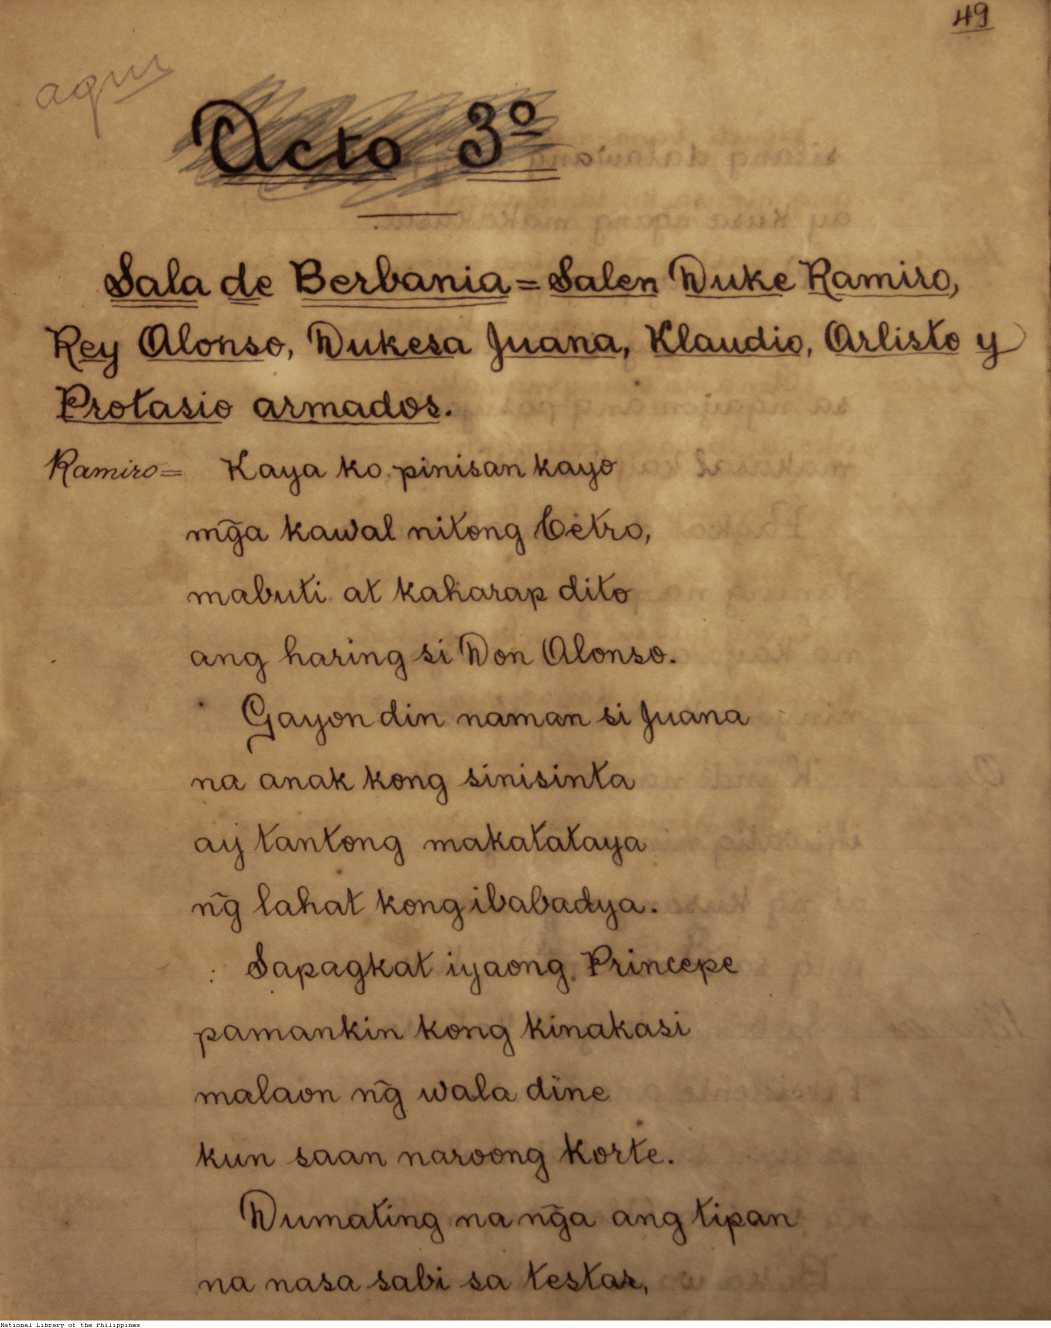 49
aqui
Acto 3º
Sala de Berbania = Salen Duke Ramiro,
Rey Alonso, Dukesa Juana, Klaudio, Arlisto y
Protasio armados.
Ramiro = Kaya ko pinisan kayo
mg̃a kawal nitong Cetro,
mabuti at kaharap dito
ang haring si Don Alonso.
Gayon din naman si Juana
na anak kong sinisinta
ay tantong makatataya
ng̃ lahat kong ibabadya.
Sapagkat iyaong Princepe
pamankin kong kinakasi
malaon ng̃ wala dine
kun saan naroong korte.
Dumating na ng̃a ang tipan
na nasa sabi sa testar,
National Library of the Philippines